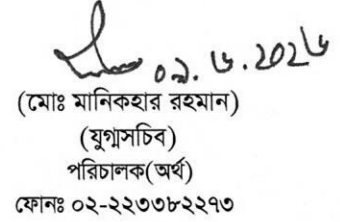 ০৯.৬.2026
(মোঃ মানিকহার রহমান)
(যুগ্মসচিব)
পরিচালক(অর্থ)
ফোনঃ ০২-২২৩৩৮২২৭৩